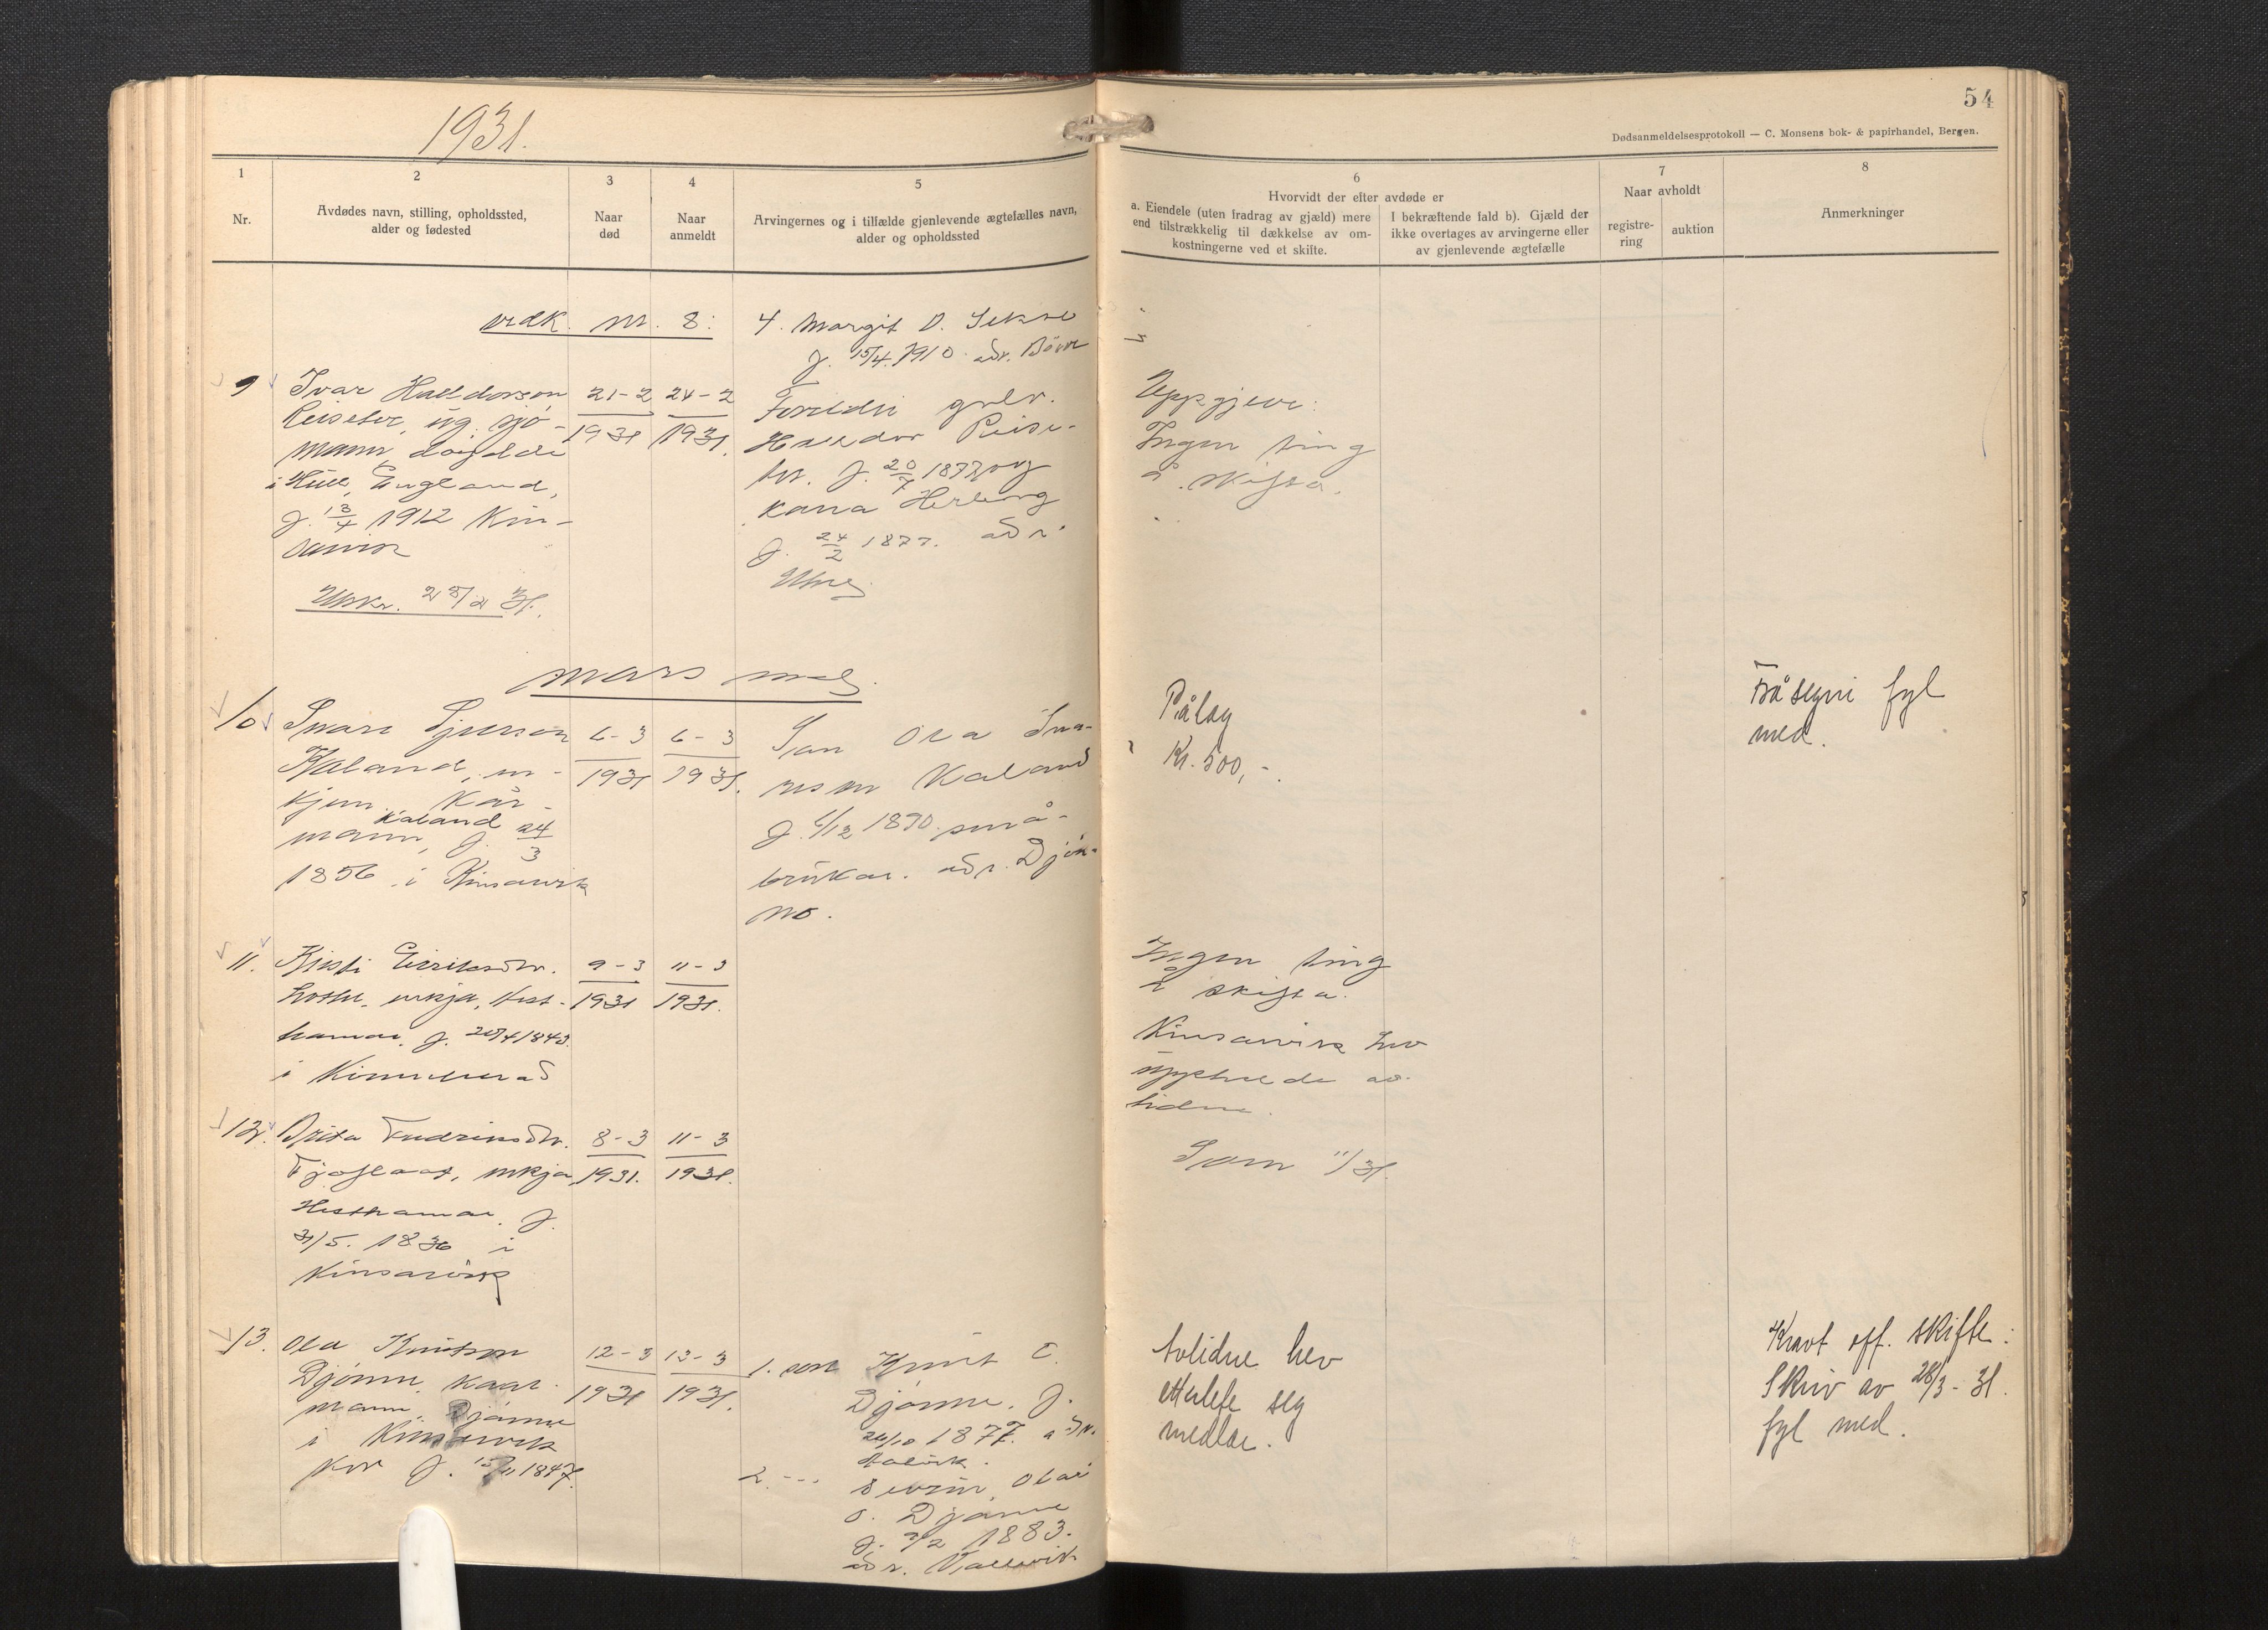 1931.
54
Dødsanmeldelsesprotokoll — C. Monsens bok- & papirhandel, Bergen.
1
Nr.
2
Avdødes navn, stilling, opholdssted,
alder og fødested
3
Naar
død
4
Naar
anmeldt
5
Arvingernes og i tilfælde gjenlevende ægtefælles navn,
alder og opholdssted
6
Hvorvidt der efter avdøde er
a. Eiendele (uten fradrag av gjæld) mere
end tilstrækkelig til dækkelse av om-
kostningerne ved et skifte.
I bekræftende fald b). Gjæld der
ikke overtages av arvingerne eller
av gjenlevende ægtefælle
7
Naar avholdt
registre-
ring
auktion
8
Anmerkninger
nr. 8:
4. Margit D. Sekse
f. 15/4. 1910. adr. Börve
9
Ivar Halldorson
Reiseter, ug. sjö-
mann,
i Hull, England,
f. 13/4 1912 Kin-
sarvik
28/2 31.
21-2
1931
24-2
1931.
Foreldri
Halldor Reise-
ter. f. 20/7 187 og
kona Herborg
f. 24/2 1877. adr.
Uppgjeve:
Ingen ting
å skifta.
mars
10
Kaland,
Kår-
Kaland
mann, f. 24/3
1856 i Kinsarvik
6-3
1931
6-3
1931.
Son Ola Sva-
reson Kaland
f. 1/12 1890. små-
brukar. adr. Djön-
no.
Pålag
Kr. 500,-.
Fråsegni fyl
med.
11.
Kristi Eiriksdtr.
enkja, Hest-
hamar. f. 1843.
i
9-3
1931
11-3
1931.
Ingen ting
å skifta.
Kinsarvik hev
av-
lidne.
12.
Brita
enkja,
Hesthamar. f.
31/5. 1836 i
Kinsarvik
8-3
1931.
11-3
1931.
Som 11/31.
13.
Ola Knutson
Djönne, kaar-
mann, Djönne
i Kinsarvik
f. 15/11 1847.
12-3
1931
13-3
1931.
1. son Knut O.
Djönne. f.
24/10 1877. adr.
2. ---
Olai
O. Djönne
f. 7/2 1883.
adr. Vallavik
Avlidne hev
etterlete seg
medlar.
Kravt off. skifte:
Skriv av 28/3-31.
fyl med.